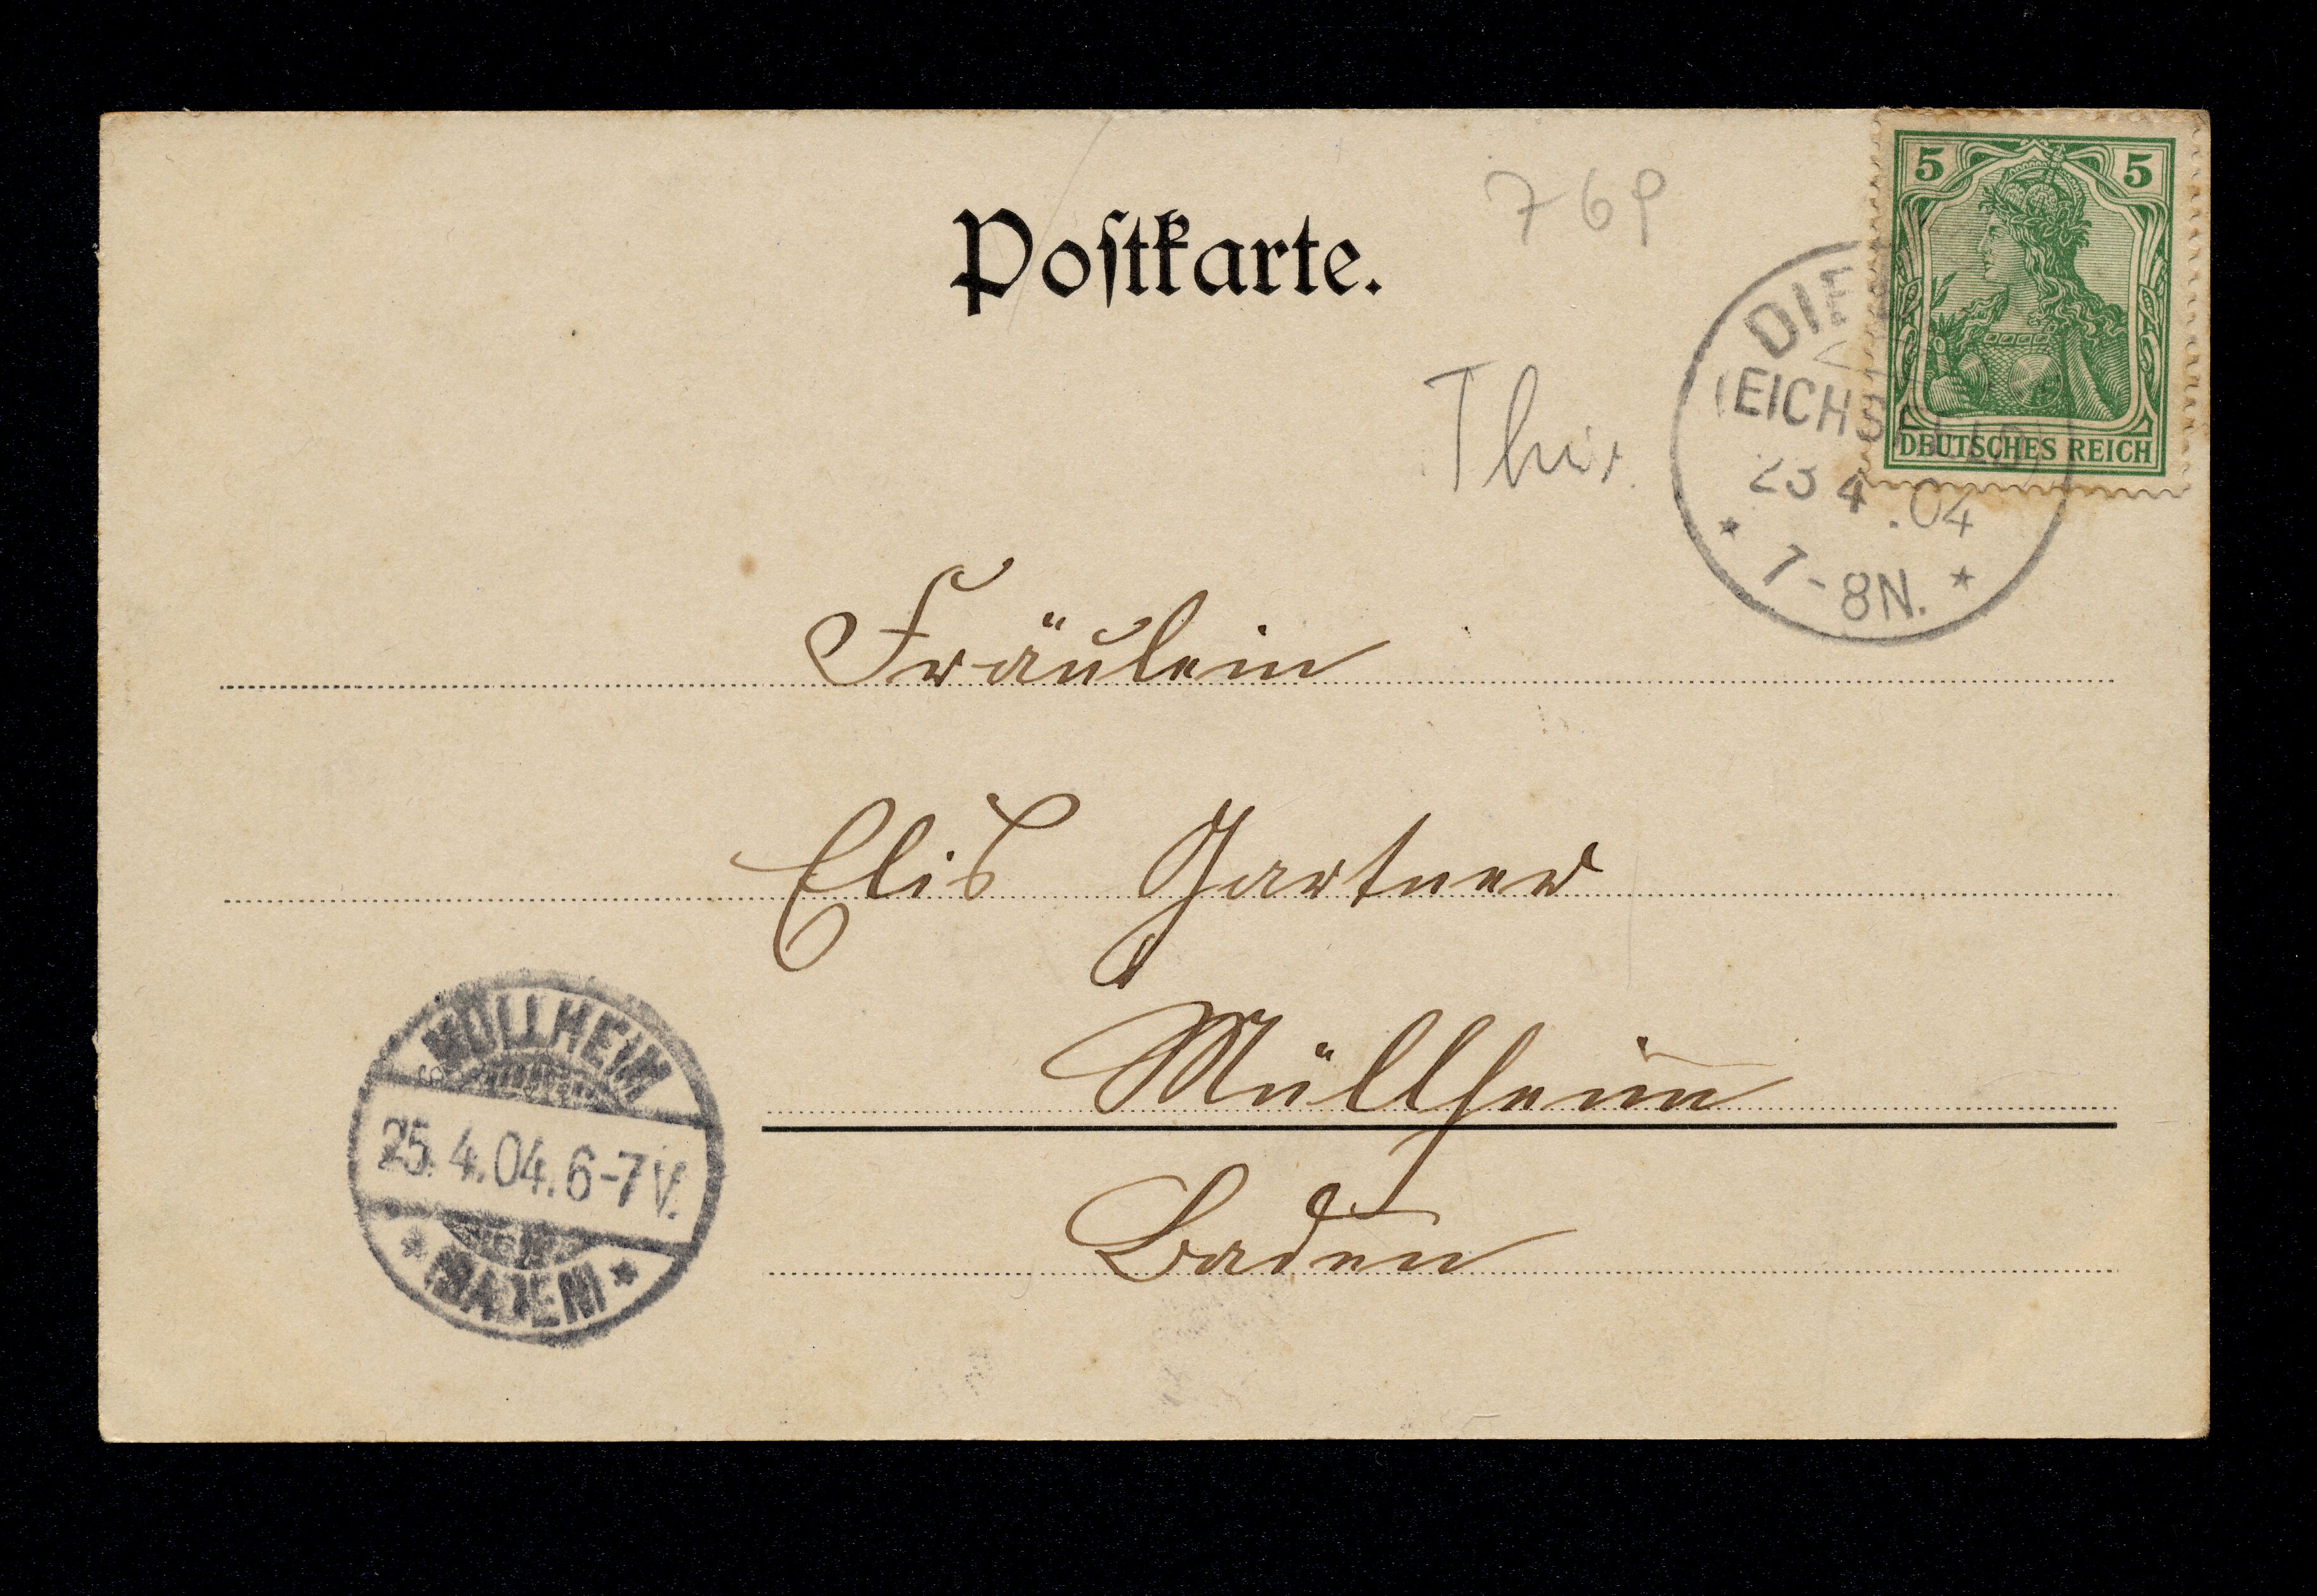 Postkarte.
769
5 5
DEUTSCHES REICH
DIE
(EICHSFELD)
23 4 .04
* 7-8N. *
Thür.
Fräulein
Elis Gartner
Müllheim
Baden
MÜLLHEIM
25.4.04.6-7V.
* BADEN *